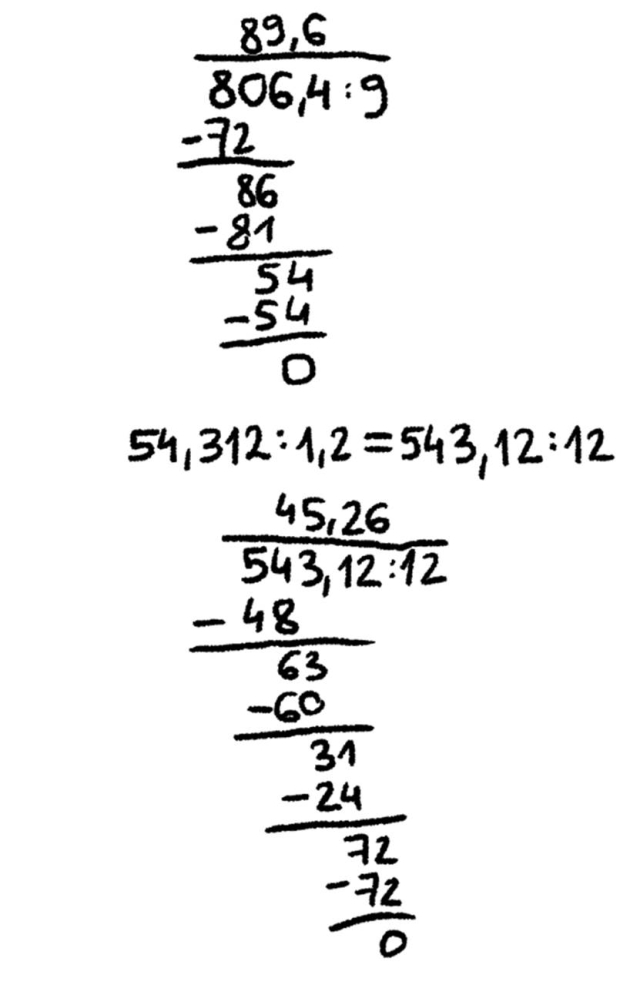 89,6
806,4:9
-72
86
-81
54
-54
0
54,312:1,2=543,12:12
45,26
543,12:12
-48
63
-60
31
-24
72
-72
0